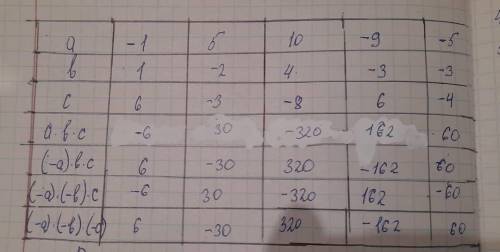 а -1 5 10 -9 -5
в 1 -2 4 -3 -3
с 6 -3 -8 6 -4
а·в·с -6 30 -320 162 60
(-а)·в·с 6 -30 320 -162 60
(-а)·(-в)·с -6 30 -320 162 -60
(-а)·(-в)(-а) 6 -30 320 -162 60